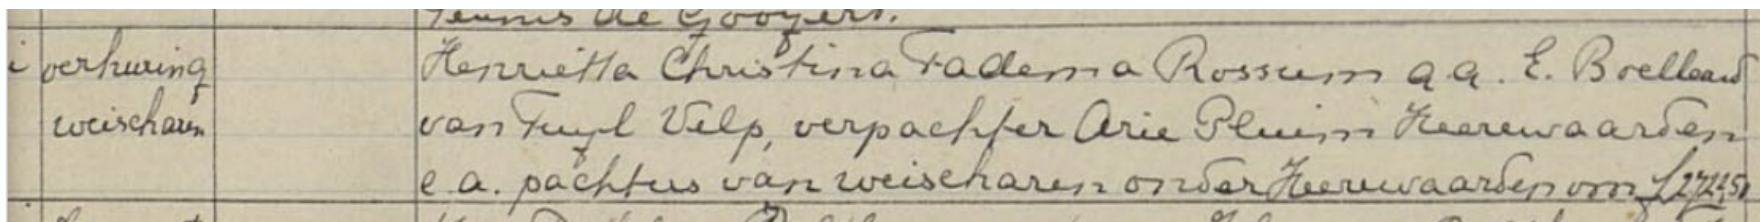 Teunis de Gooyert.
i verhuring Henrietta Christina Fadema Rossum q.q. E. Boelleard
weischaren van Tuyl Velp, verpachter Arie Pluim Heerewaarden
e.a. pachters van weischaren onder Heerewaarden om